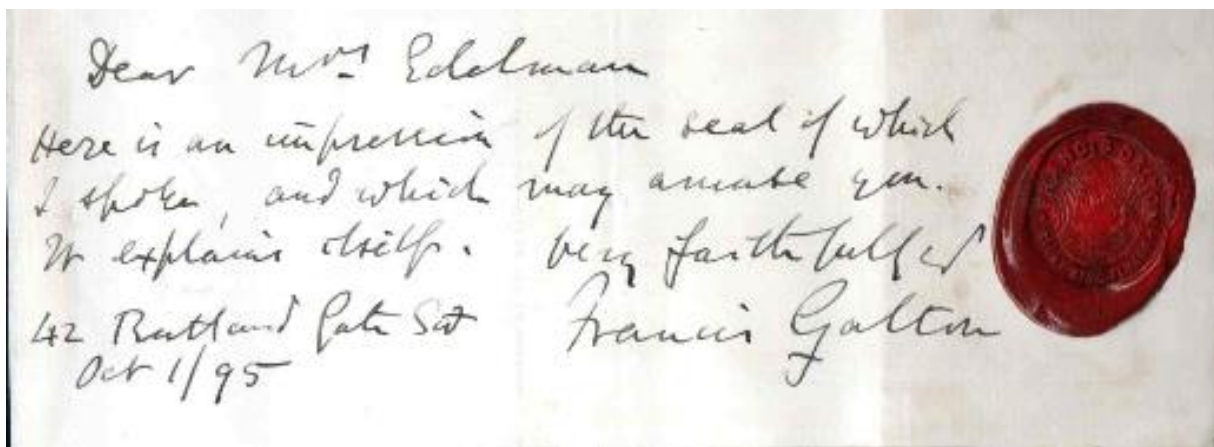 Dear Mrs Edelman
Here is an impression of the seal of which
I spoke, and which may amuse you.
It explains itself. Very faithfully
42 Rutland Gate SW Francis Galton
Oct 1/95